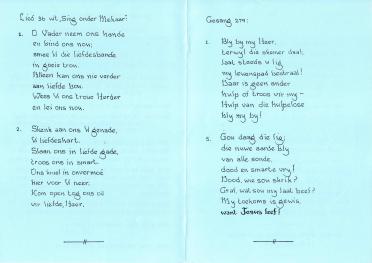 Lied 36 uit „Sing onder Mekaar":
1. O Vader neem ons hande
en bind ons nou,
smee U die liefdesbande
in goeie trou.
Alleen kan ons nie verder
aan liefde bou.
Wees U ons troue Herder
en lei ons nou.
2. Skenk aan ons U genade,
U liefdeshart.
Staan ons in liefde gade,
troos ons in smart.
Ons kniel in onvermoë
hier voor U neer.
Kom open tog ons oë
vir liefde, Heer.
Gesang 279:
1. Bly by my Heer,
terwyl die skemer daal,
laat steeds u lig
my lewenspad bestraal!
Daar is geen ander
hulp of troos vir my -
Hulp van die hulpelose
bly my by!
5. Gou daag die lig;
die nuwe aarde bly
van alle sonde,
dood en smarte vry!
Dood, wie sou skrik?
Graf, wat sou my laat beef?
My toekoms is gewis,
want Jesus leef!